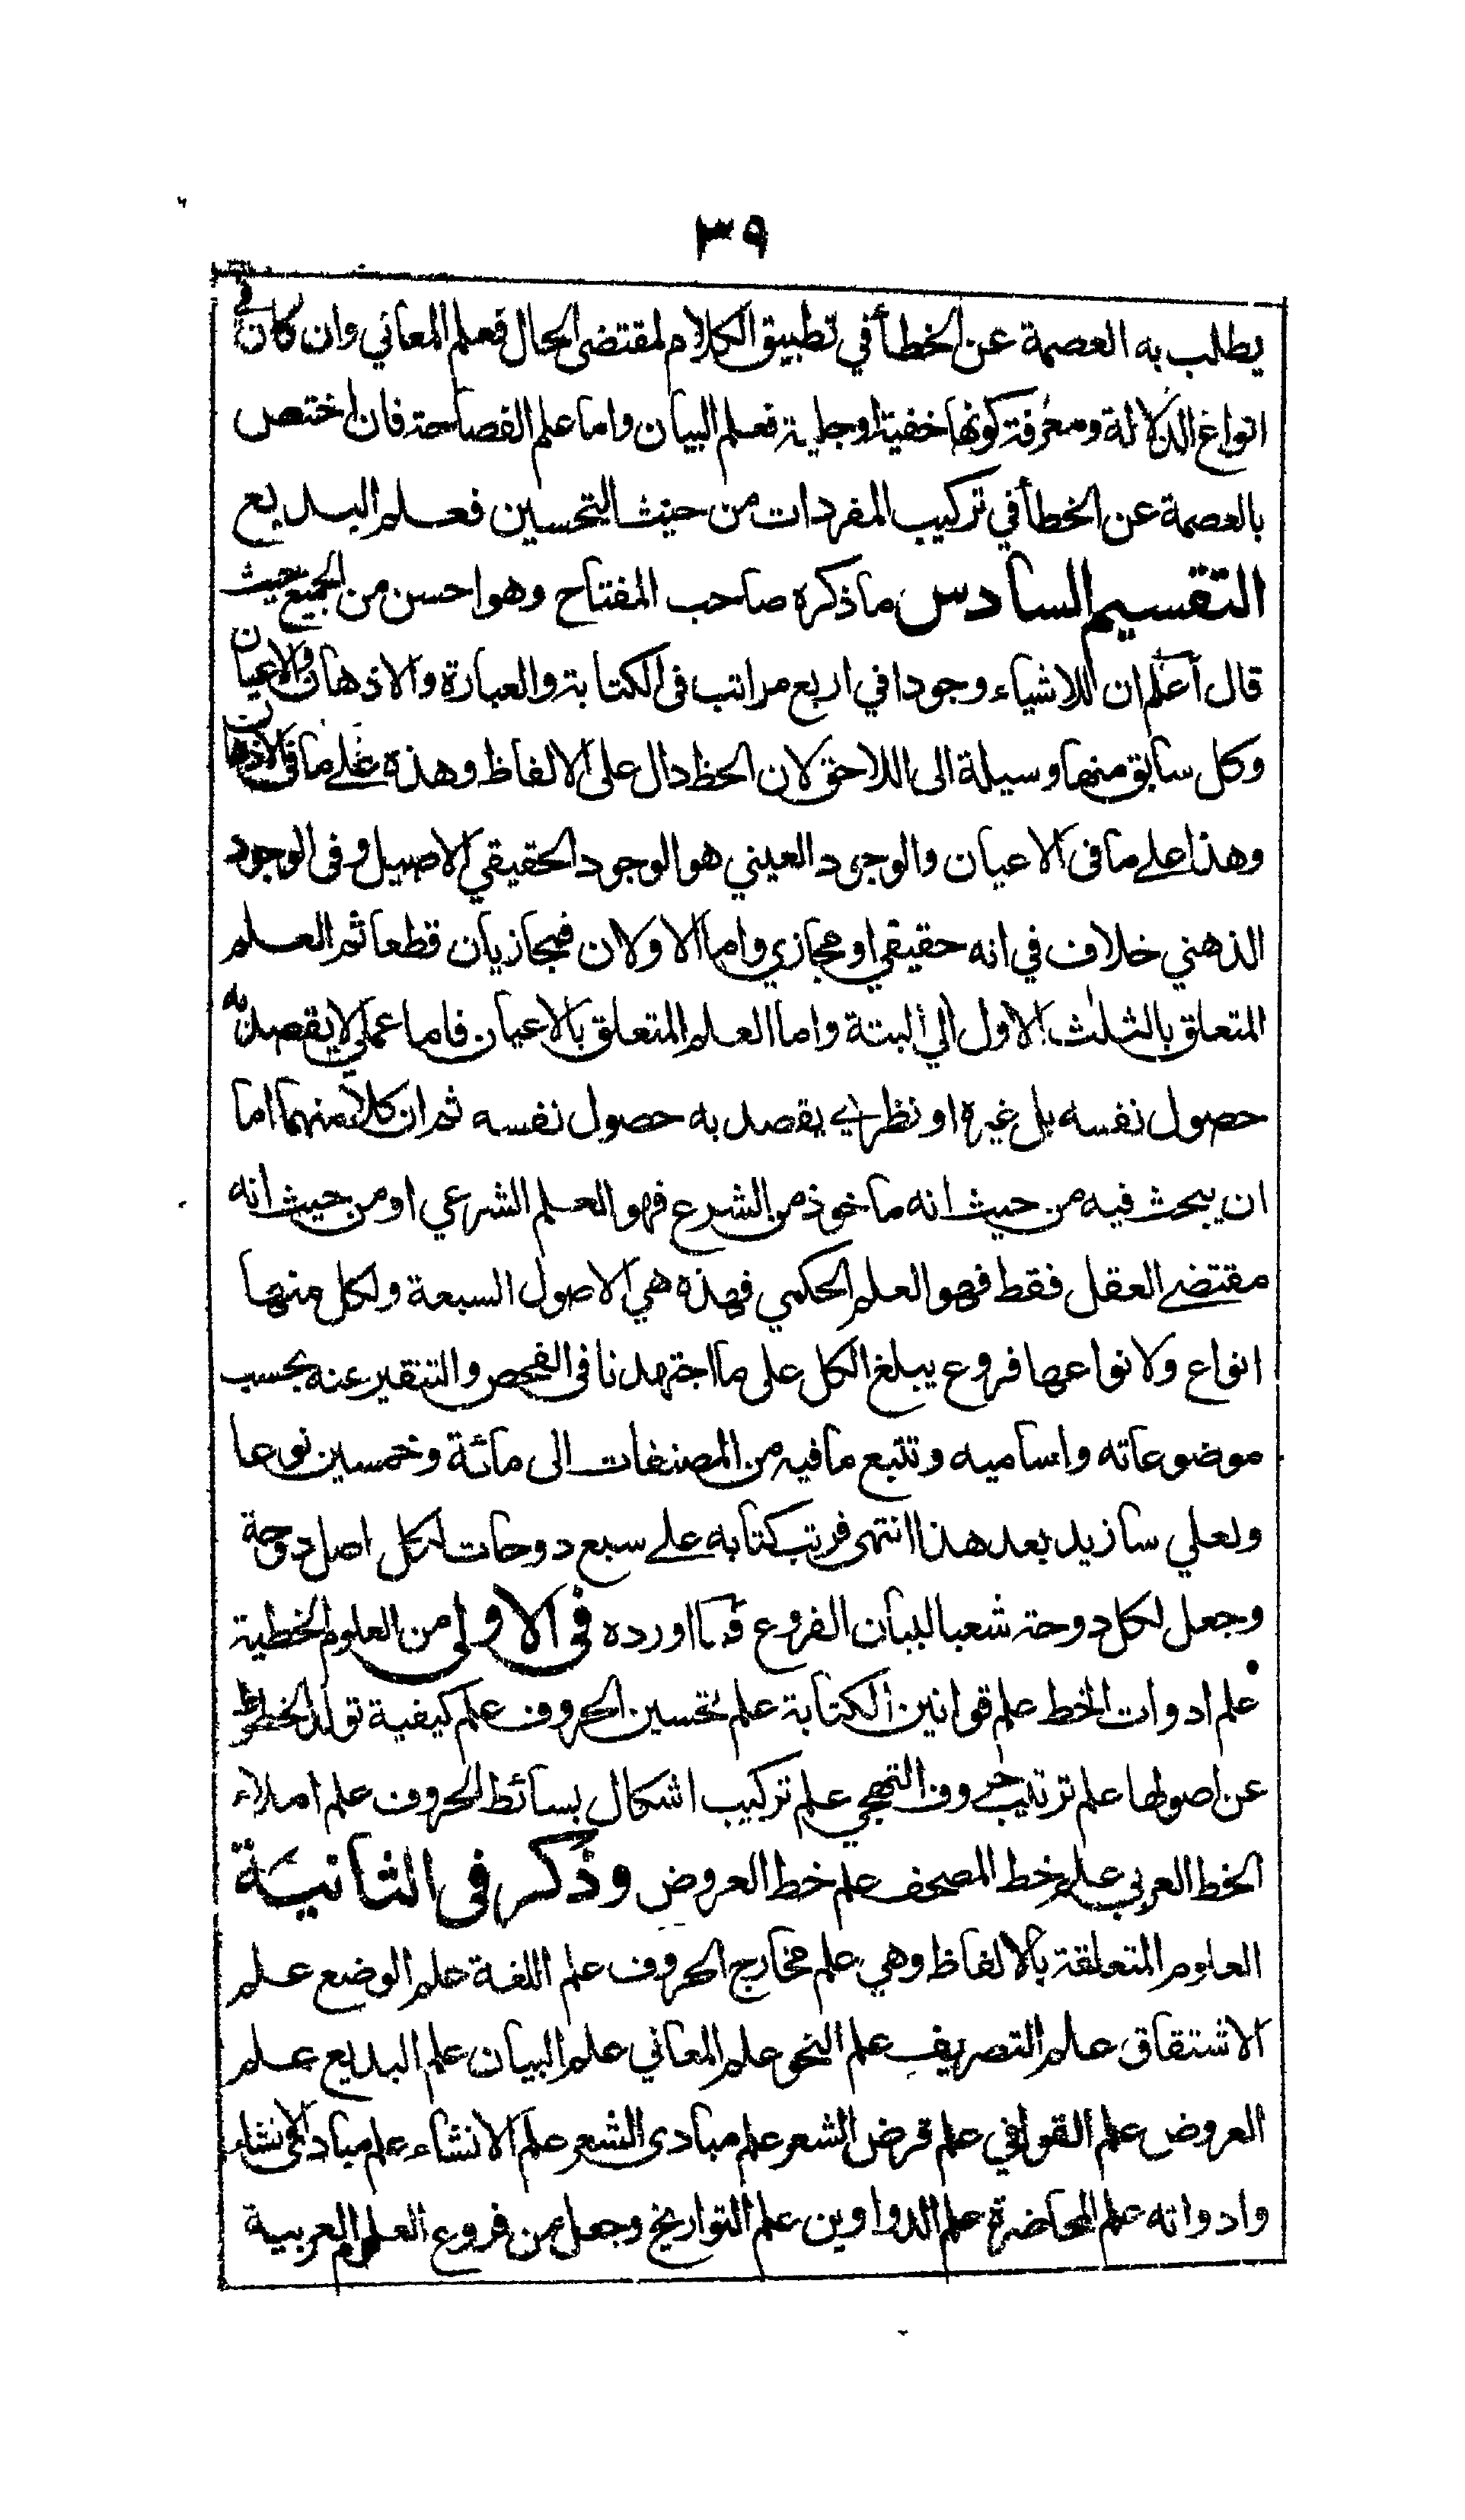 ٣٩
يطلب به العصمة عن الخطأ في تطبيق الكلام لمقتضى الحال فعلم المعاني وان كان في
انواع الدلالة ومعرفة كونها خفية او جلية فعلم البيان واما علم الفصاحة فان اختص
بالعصمة عن الخطأ في تركيب المفردات من حيث التحسين فعلم البديع
التقسيم السادس ما ذكره صاحب المفتاح وهو احسن من الجميع حيث
قال اعلم ان للاشياء وجودا في اربع مراتب في الكتابة والعبارة والاذهان والاعيان
وكل سابق منها وسيلة الى اللاحق لان الخط دال على الالفاظ وهذه على ما في الاذهان
وهذا على ما في الاعيان والوجود العيني هو الوجود الحقيقي الاصيل وفى الوجود
الذهني خلاف في انه حقيقي او مجازي واما الاولان فمجازيان قطعا ثم العلم
المتعلق بالثلث الاول الي البتة واما العلم المتعلق بالاعيان فاما عملي لا يقصد به
حصول نفسه بل غيره او نظري يقصد به حصول نفسه ثم ان كلا منهما اما
ان يبحث فيه من حيث انه ماخوذ من الشرع فهو العلم الشرعي او من حيث انه
مقتضى العقل فقط فهو العلم الحكمي فهذه هي الاصول السبعة ولكل منها
انواع ولانواعها فروع يبلغ الكل على ما اجتهدنا فى الفحص والتنقير عنه بحسب
موضوعاته واساميه وتتبع ما فيه من المصنفات الى مائة وخمسين نوعا
ولعلي سازيد بعد هذا انتهى فرتب كتابه على سبع دوحات لكل اصل دوحة
وجعل لكل دوحة شعبا لبيان الفروع فما اورده في الاولى من العلوم الخطية
علم ادوات الخط علم قوانين الكتابة علم تحسين الحروف علم كيفية تولد الخطوط
عن اصولها علم ترتيب حروف التهجي علم تركيب اشكال بسائط الحروف علم املاء
الخط العربي علم خط المصحف علم خط العروض وذكر فى الثانية
العلوم المتعلقة بالالفاظ وهي علم مخارج الحروف علم اللغة علم الوضع علم
الاشتقاق علم التصريف علم النحو علم المعاني علم البيان علم البديع علم
العروض علم القوافي علم قرض الشعر علم مبادى الشعر علم الانشاء علم مبادى الانشاء
وادواته علم المحاضرة علم الدواوين علم التواريخ وجعل من فروع العلم العربية